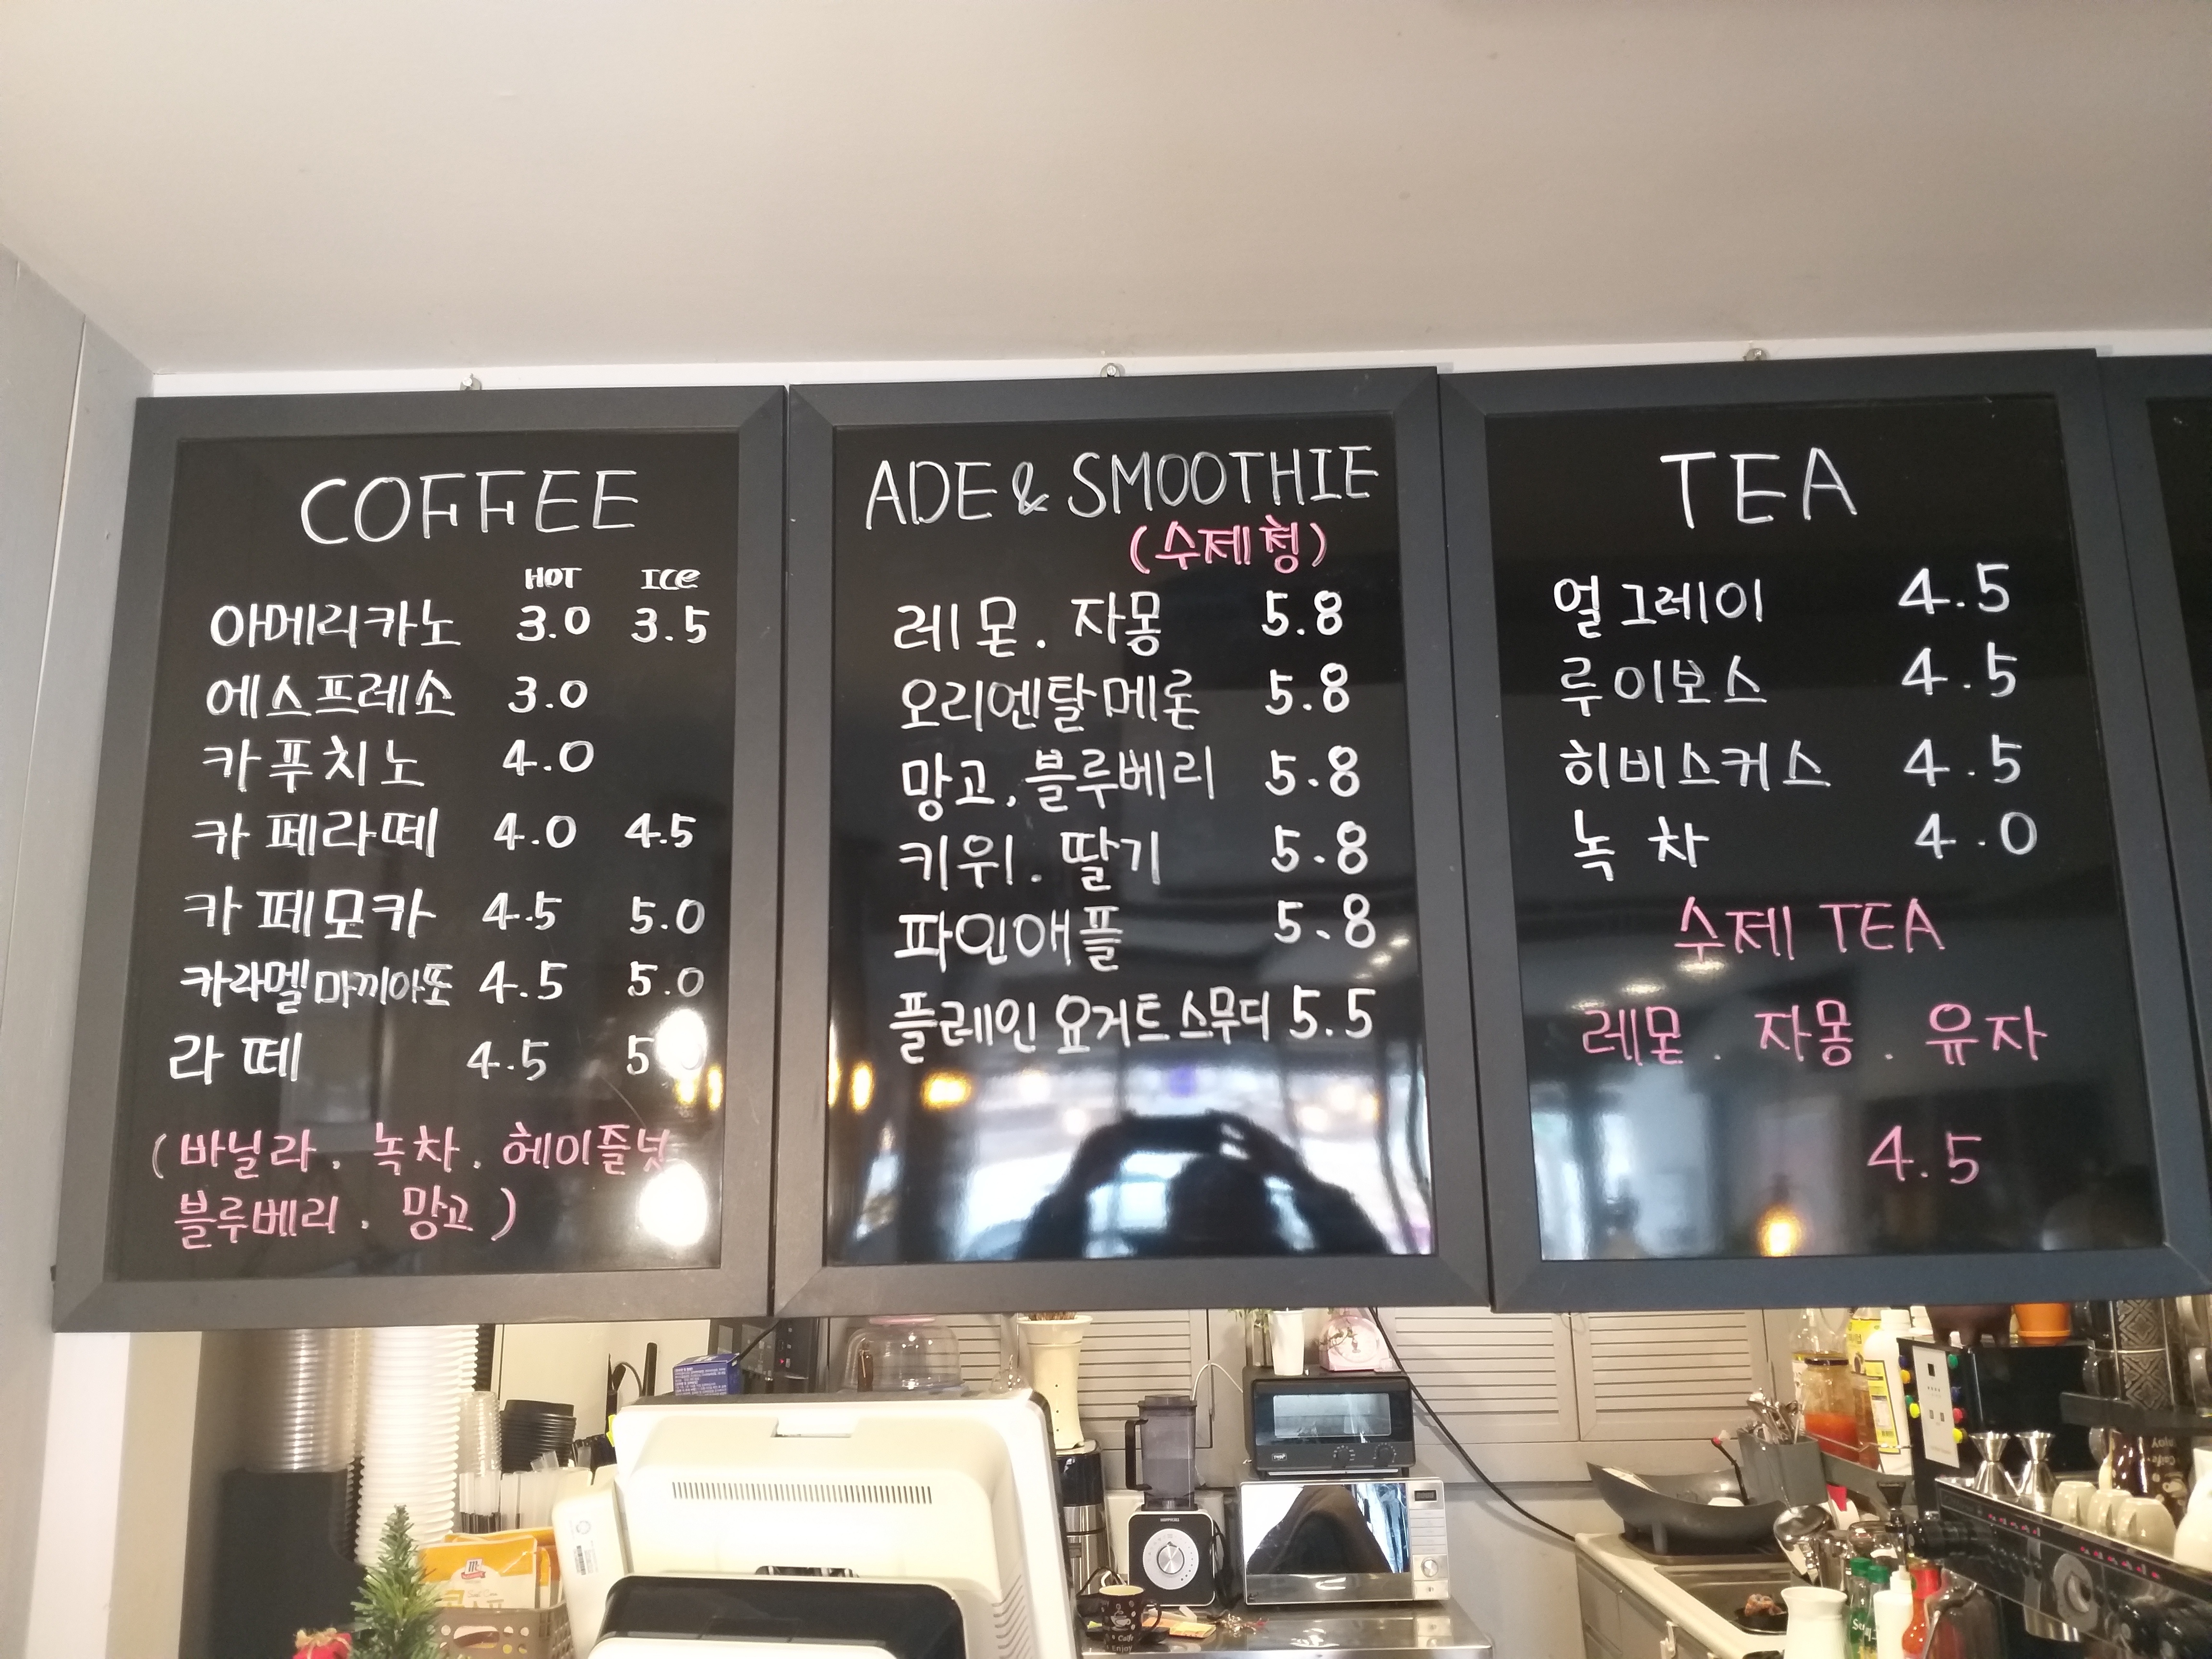 COFFEE
HOT ICE
아메리카노 3.0 3.5
에스프레소 3.0
카푸치노 4.0
카페라떼 4.0 4.5
카페모카 4.5 5.0
카라멜마끼아또 4.5 5.0
라떼 4.5
(바닐라. 녹차. 헤이즐넛
블루베리. 망고)
ADE & SMOOTHIE
(수제청)
레몬. 자몽 5.8
오리엔탈메론 5.8
망고, 블루베리 5.8
키위. 딸기 5.8
파인애플 5.8
플레인 요거트 스무디 5.5
TEA
얼그레이 4.5
루이보스 4.5
히비스커스 4.5
녹차 4.0
수제 TEA
레몬. 자몽. 유자
4.5